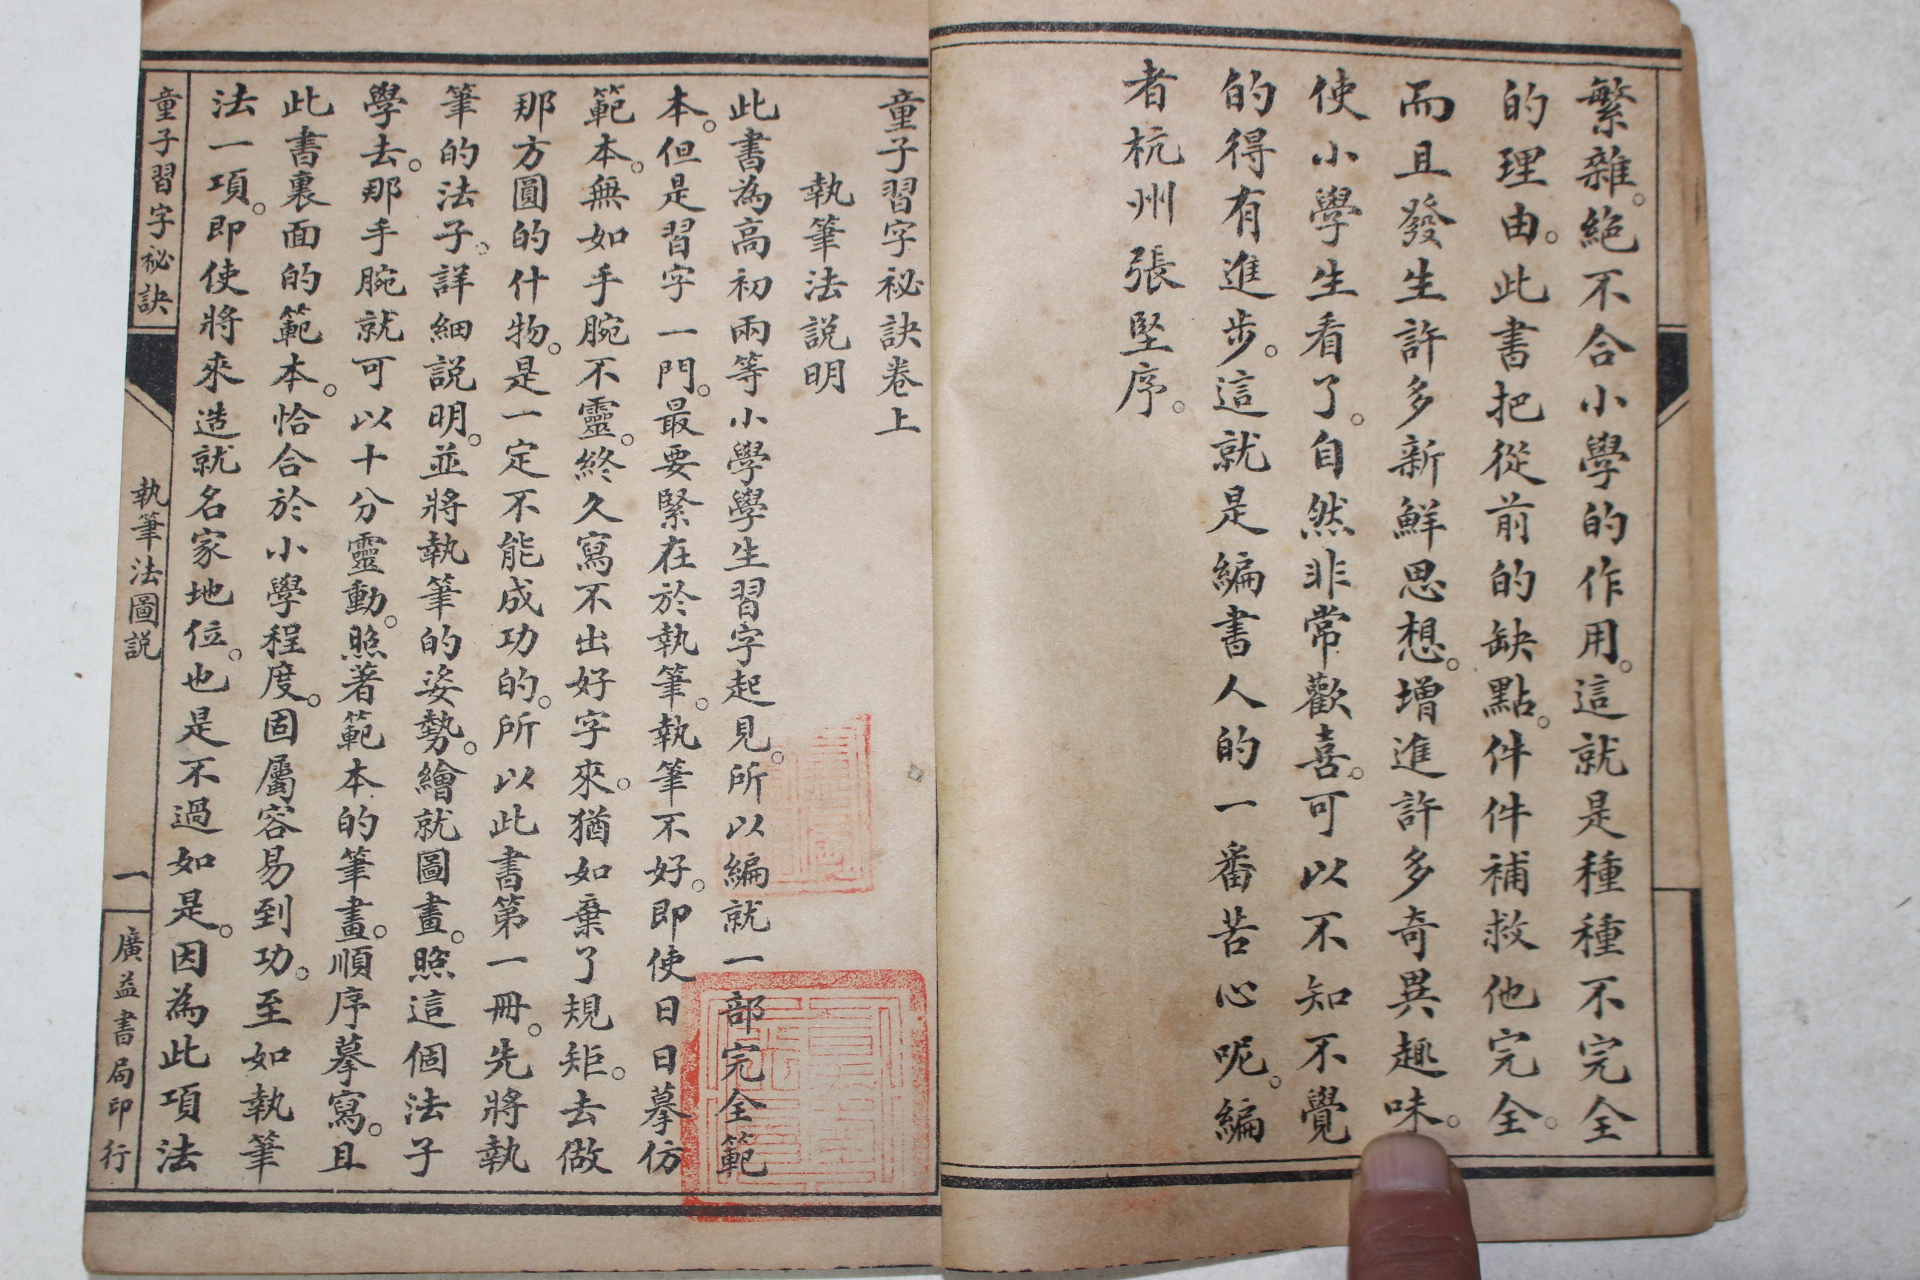 繁雜。絕不合小學的作用。這就是種種不完全
的理由。此書把從前的缺點。件件補救他完全。
而且發生許多新鮮思想。增進許多奇異趣味。
使小學生看了。自然非常歡喜。可以不知不覺
的得有進步。這就是編書人的一番苦心呢。編
者杭州張堅序。
童子習字祕訣卷上
執筆法説明
此書為高初兩等小學學生習字起見。所以編就一部完全範
本。但是習字一門。最要緊在於執筆。執筆不好。即使日日摹仿
範本。無如手腕不靈。終久寫不出好字來。猶如棄了規矩。去做
那方圓的什物。是一定不能成功的。所以此書第一冊。先將執
筆的法子。詳細説明。並將執筆的姿勢。繪就圖畫。照這個法子
學去。那手腕就可以十分靈動。照著範本的筆畫。順序摹寫。且
此書裏面的範本。恰合於小學程度。固屬容易到功。至如執筆
法一項。即使將來造就名家地位。也是不過如是。因為此項法
童子習字祕訣
執筆法圖説
一
廣益書局印行